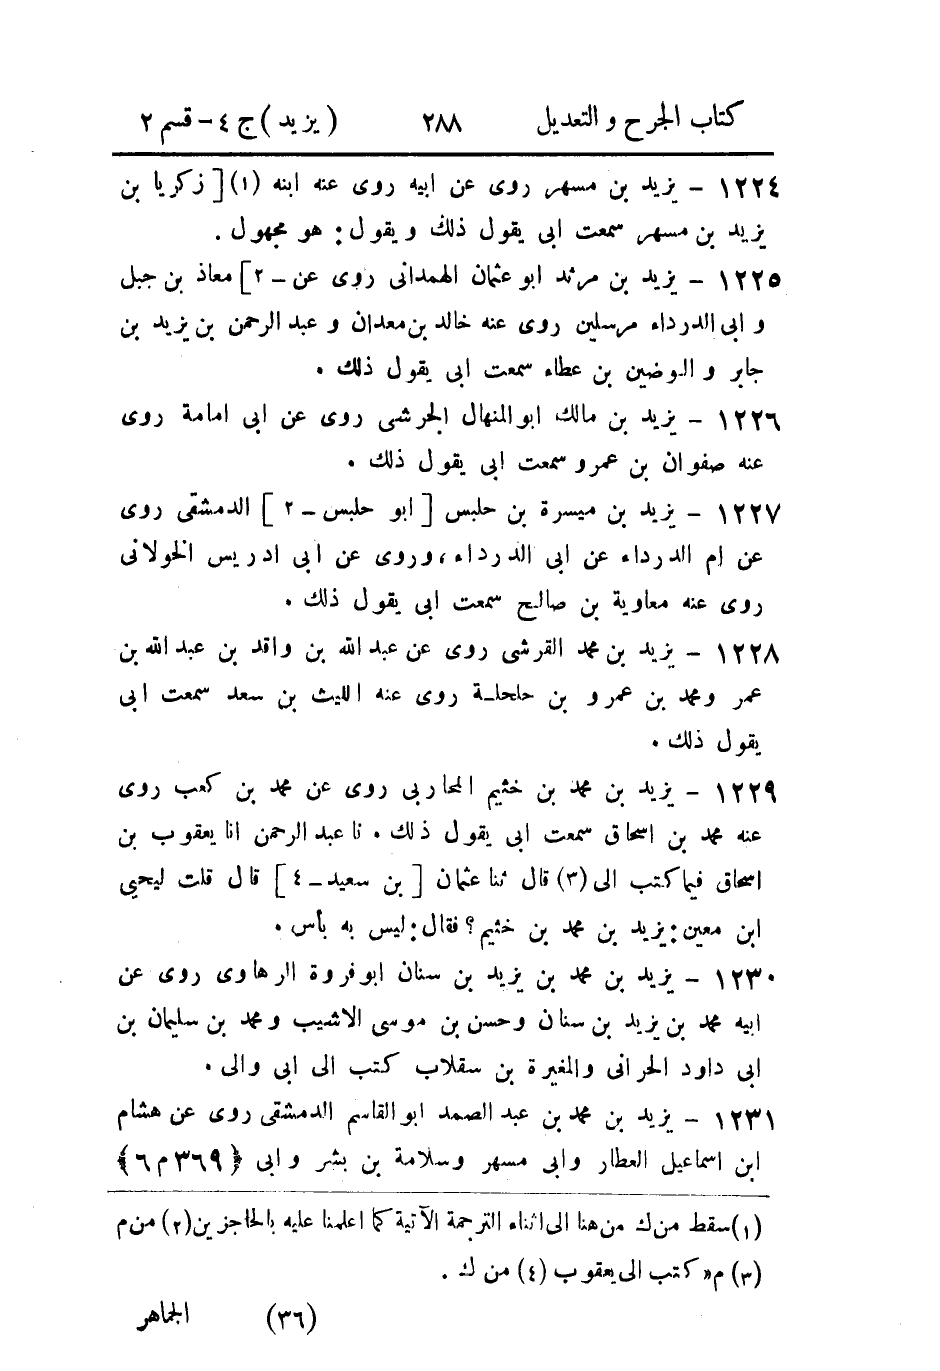 كتاب الجرح و التعديل ٢٨٨ (يزيد) ج ٤ - قسم ٢
١٢٢٤ - يزيد بن مسهر روى عن ابيه روى عنه ابنه (١) [زكريا بن
يزيد بن مسهر سمعت ابى يقول ذلك ويقول: هو مجهول.
١٢٢٥ - يزيد بن مرثد ابو عثمان الهمدانى روى عن - ٢] معاذ بن جبل
و ابى الدرداء مرسلين روى عنه خالد بن معدان و عبد الرحمن بن يزيد بن
جابر و الوضين بن عطاء سمعت ابى يقول ذلك.
١٢٢٦ - يزيد بن مالك ابو المنهال الجرشى روى عن ابى امامة روى
عنه صفوان بن عمرو سمعت ابى يقول ذلك.
١٢٢٧ - يزيد بن ميسرة بن حلبس [ابو حلبس - ٢] الدمشقى روى
عن ام الدرداء عن ابى الدرداء، وروى عن ابى ادريس الخولانى
روى عنه معاوية بن صالح سمعت ابى يقول ذلك.
١٢٢٨ - يزيد بن محمد القرشى روى عن عبد الله بن واقد بن عبد الله بن
عمر ومحمد بن عمرو بن حلحلة روى عنه الليث بن سعد سمعت ابى
يقول ذلك.
١٢٢٩ - يزيد بن محمد بن خثيم المحاربى روى عن محمد بن كعب روى
عنه محمد بن اسحاق سمعت ابى يقول ذلك. نا عبد الرحمن انا يعقوب بن
اسحاق فيما كتب الى (٣) قال ثنا عثمان [بن سعيد - ٤] قال قلت ليحيى
ابن معين: يزيد بن محمد بن خثيم؟ فقال: ليس به بأس.
١٢٣٠ - يزيد بن محمد بن يزيد بن سنان ابو فروة الرهاوى روى عن
ابيه محمد بن يزيد بن سنان وحسن بن موسى الاشيب ومحمد بن سليمان بن
ابى داود الحرانى والمغيرة بن سقلاب كتب الى ابى والى.
١٢٣١ - يزيد بن محمد بن عبد الصمد ابو القاسم الدمشقى روى عن هشام
ابن اسماعيل العطار وابى مسهر وسلامة بن بشر و ابى {٣٦٩ م ٦}
(١) سقط من ك من هنا الى اثناء الترجمة الآتية كما اعلمنا عليه بالحاجزين (٢) من م
(٣) م « كتب الى يعقوب (٤) من ك.
(٣٦) الجماهر